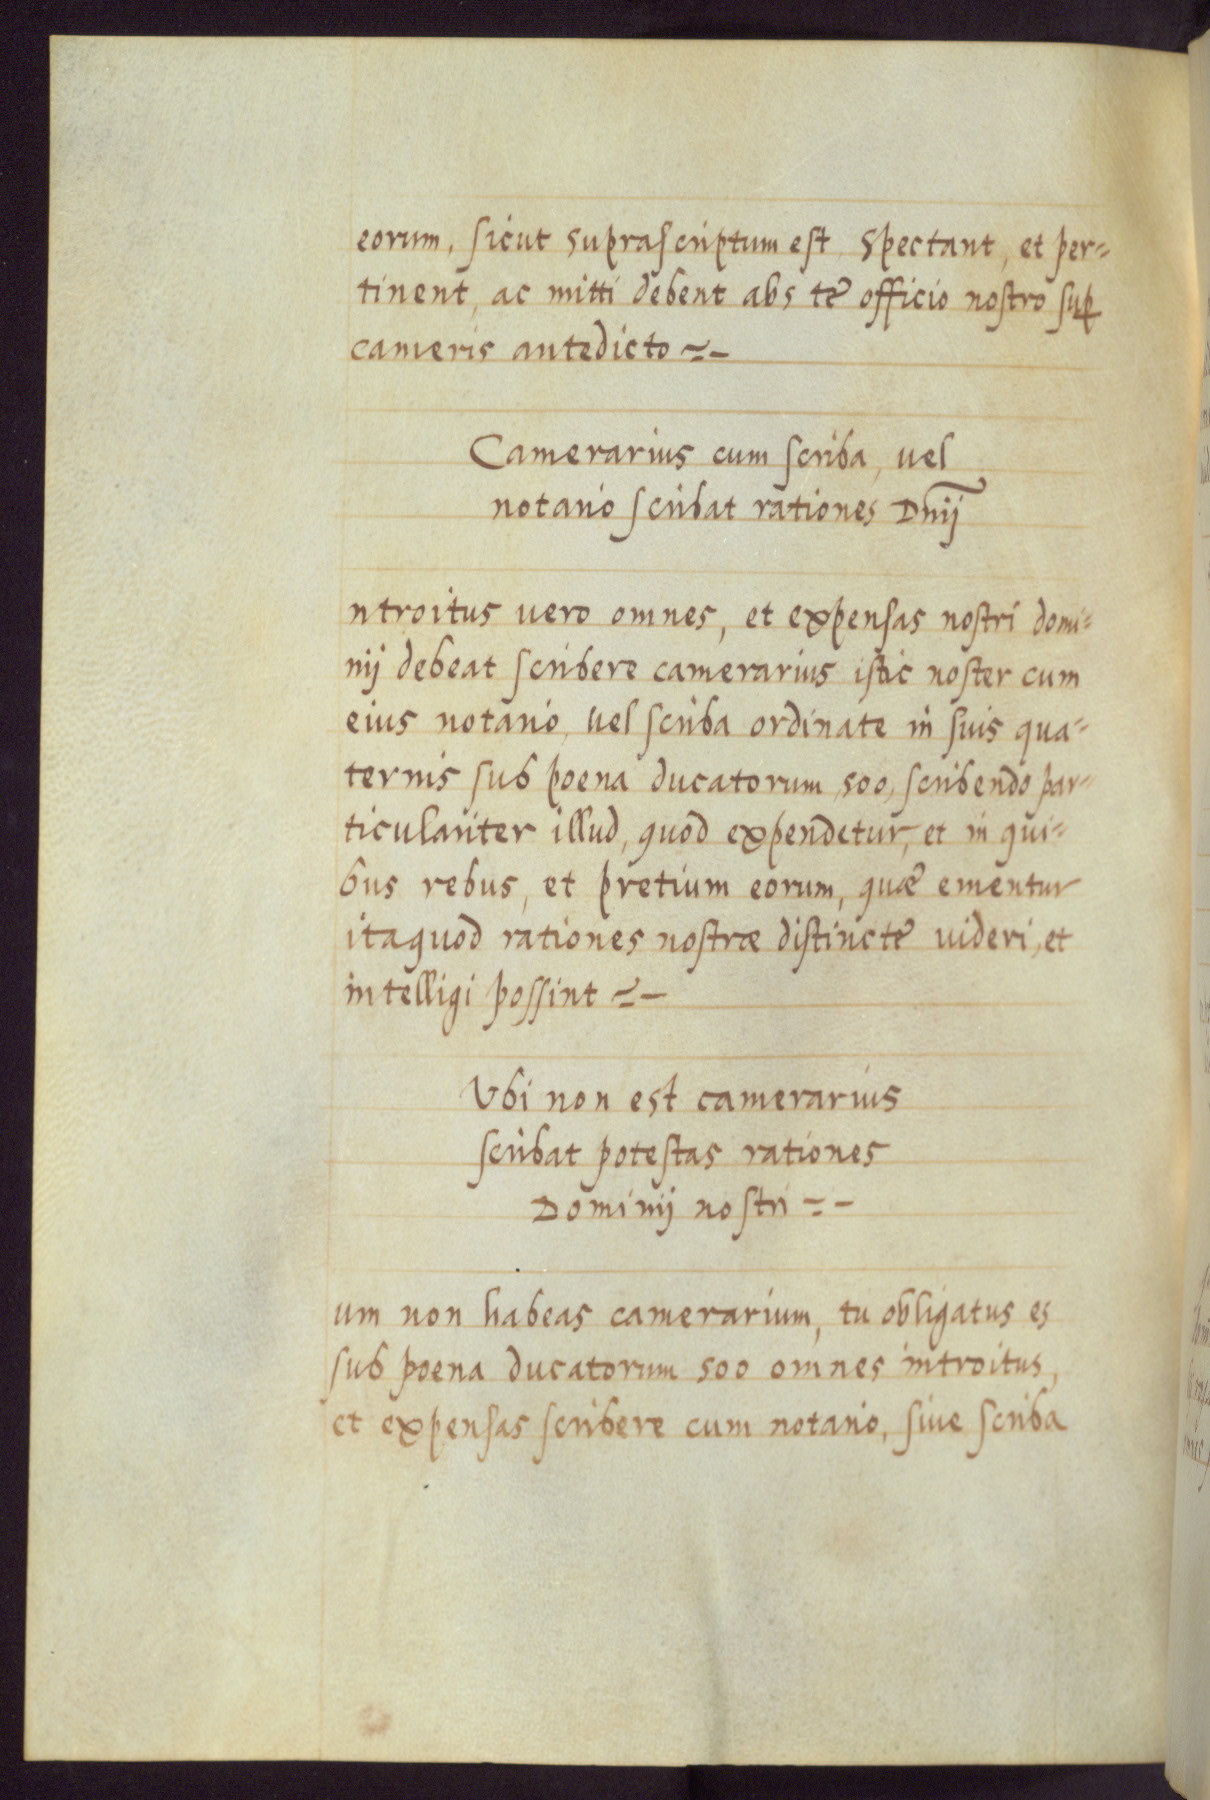 eorum, sicut suprascriptum est spectant, et per=
tinent, ac mitti debent abs te officio nostro sup
cameris antedicto =-
Camerarius cum scriba, vel
notario scribat rationes Dnij
ntroitus vero omnes, et expensas nostri domi=
nij debeat scribere camerarius istic noster cum
eius notario, vel scriba ordinate in suis qua=
ternis sub poena ducatorum 500, scribendo par=
ticulariter illud, quod expendetur, et in qui=
bus rebus, et pretium eorum, quæ ementur
itaquod rationes nostræ distincte videri, et
intelligi possint =-
Vbi non est camerarius
scribat potestas rationes
Dominij nostri =-
um non habeas camerarium, tu obligatus es
sub poena ducatorum 500 omnes introitus,
et expensas scribere cum notario, sive scriba